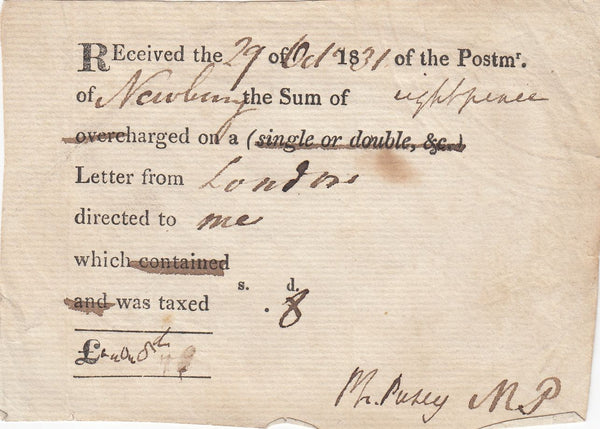 REceived the 29 of Oct 1831 of the Postmr.
of Newbury the Sum of eightpence
overcharged on a (single or double, &c.)
Letter from London
directed to me
which contained
s. d.
and was taxed . 8
£
Ph. Pusey MP